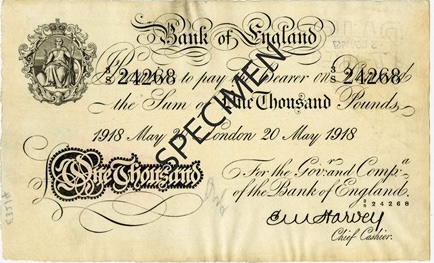 Bank of England
SPECIMEN
5/S 24268 to pay the Bearer on 5/S 24268
the Sum of One Thousand Pounds.
1918 May 20 London 20 May 1918
One Thousand
For the Govr. and Compa.
of the Bank of England.
5/S 24268
E M Harvey
Chief Cashier.